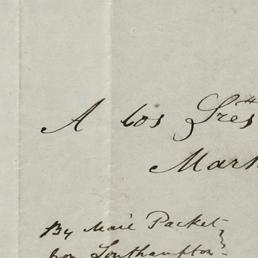 A los Sres
Mart
By Mail Packet
Southampton